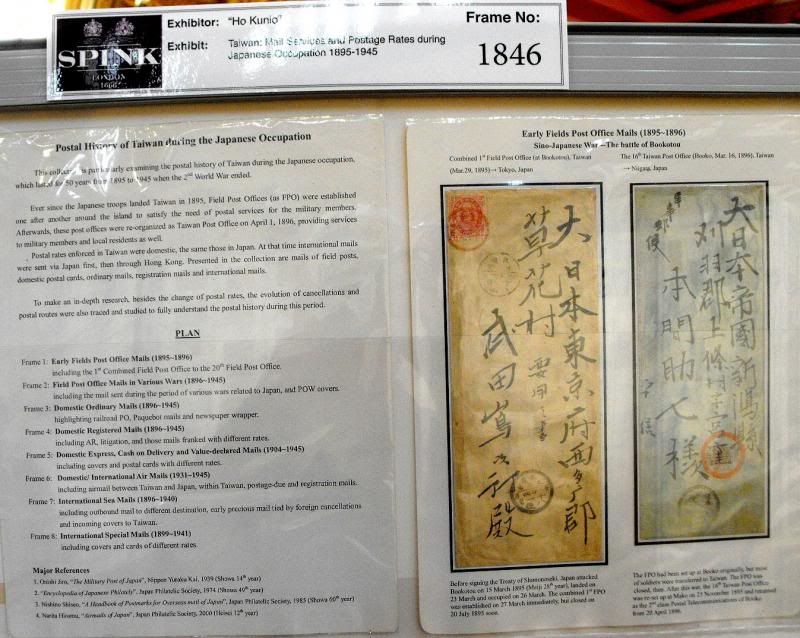 SPINK
LONDON
1666
Exhibitor: "Ho Kunio"
Exhibit: Taiwan: Mail Services and Postage Rates during
Japanese Occupation 1895-1945
Frame No:
1846
Postal History of Taiwan during the Japanese Occupation
This collection is particularly examining the postal history of Taiwan during the Japanese occupation,
which lasted for 50 years from 1895 to 1945 when the 2nd World War ended.
Ever since the Japanese troops landed Taiwan in 1895, Field Post Offices (as FPO) were established
one after another around the island to satisfy the need of postal services for the military members.
Afterwards, these post offices were re-organized as Taiwan Post Office on April 1, 1896, providing services
to military members and local residents as well.
Postal rates enforced in Taiwan were domestic, the same those in Japan. At that time international mails
were sent via Japan first, then through Hong Kong. Presented in the collection are mails of field posts,
domestic postal cards, ordinary mails, registration mails and international mails.
To make an in-depth research, besides the change of postal rates, the evolution of cancellations and
postal routes were also traced and studied to fully understand the postal history during this period.
PLAN
Frame 1: Early Fields Post Office Mails (1895~1896)
including the 1st Combined Field Post Office to the 20th Field Post Office.
Frame 2: Field Post Office Mails in Various Wars (1896~1945)
including the mail sent during the period of various wars related to Japan, and POW covers.
Frame 3: Domestic Ordinary Mails (1896~1945)
highlighting railroad PO, Paquebot mails and newspaper wrapper.
Frame 4: Domestic Registered Mails (1896~1945)
including AR, litigation, and those mails franked with different rates.
Frame 5: Domestic Express, Cash on Delivery and Value-declared Mails (1904~1945)
including covers and postal cards with different rates.
Frame 6: Domestic/ International Air Mails (1931~1945)
including airmail between Taiwan and Japan, within Taiwan, postage-due and registration mails.
Frame 7: International Sea Mails (1896~1940)
including outbound mail to different destination, early precious mail tied by foreign cancellations
and incoming covers to Taiwan.
Frame 8: International Special Mails (1899~1941)
including covers and cards of different rates.
Major References
1. Onishi Jiro, "The Military Post of Japan", Nippon Yuraku Kai, 1939 (Showa 14th year)
2. "Encyclopedia of Japanese Philately", Japan Philatelic Society, 1974 (Showa 49th year)
3. Nishino Shiseo, "A Handbook of Postmarks for Overseas mail of Japan", Japan Philatelic Society, 1985 (Showa 60th year)
4. Narita Hiromu, "Airmails of Japan", Japan Philatelic Society, 2000 (Heisei 12th year)
Early Fields Post Office Mails (1895~1896)
Sino-Japanese War --The battle of Bookotou
Combined 1st Field Post Office (at Bookotou), Taiwan
(Mar.29, 1895)→ Tokyo, Japan
The 16th Taiwan Post Office (Booko, Mar. 16, 1896), Taiwan
→ Niigata, Japan
大日本東京府西多摩郡
草花村
要用
武田
殿
大日本帝國新潟縣
刈羽郡上條村
本間助七様
軍事郵便
Before signing the Treaty of Shimonoseki, Japan attacked
Bookotou on 15 March 1895 (Meiji 28th year), landed on
23 March and occupied on 26 March. The combined 1st FPO
was established on 27 March immediately, but closed on
20 July 1895 soon.
The FPO had been set up at Booko originally, but most
of soldiers were transferred to Taiwan. The FPO was
closed, then. After this war, the 16th Taiwan Post Office
was re-set up at Mako on 25 November 1895 and renamed
as the 2nd class Postal Telecommunications of Booko
from 20 April 1896.